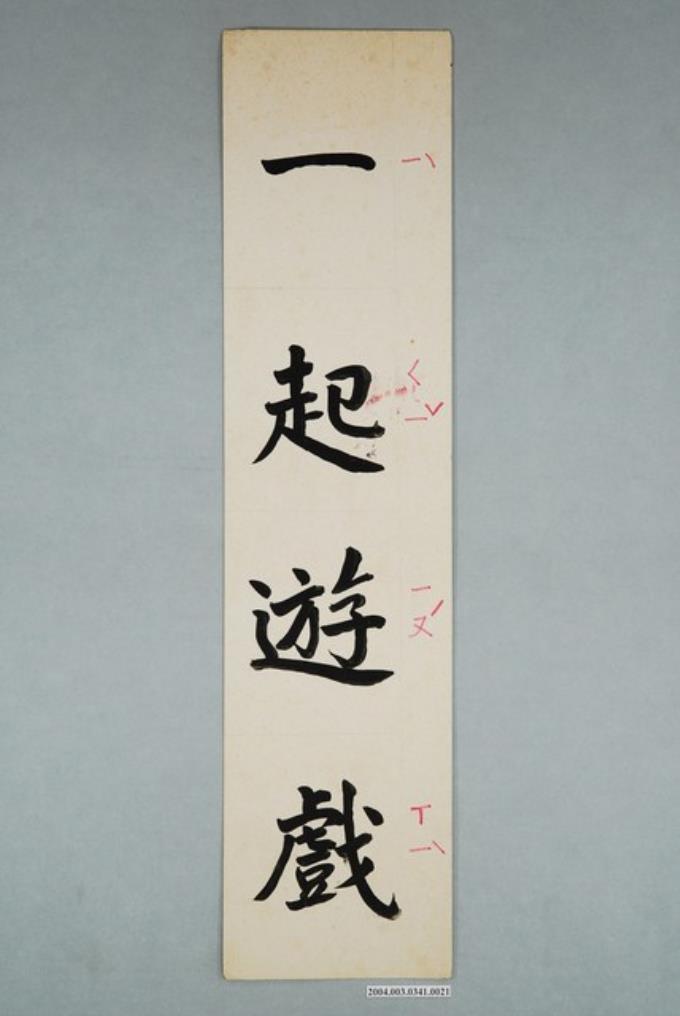 一起遊戲
ㄧˋ
ㄑㄧˇ
ㄧㄡˊ
ㄒㄧˋ
2004.003.0341.0021